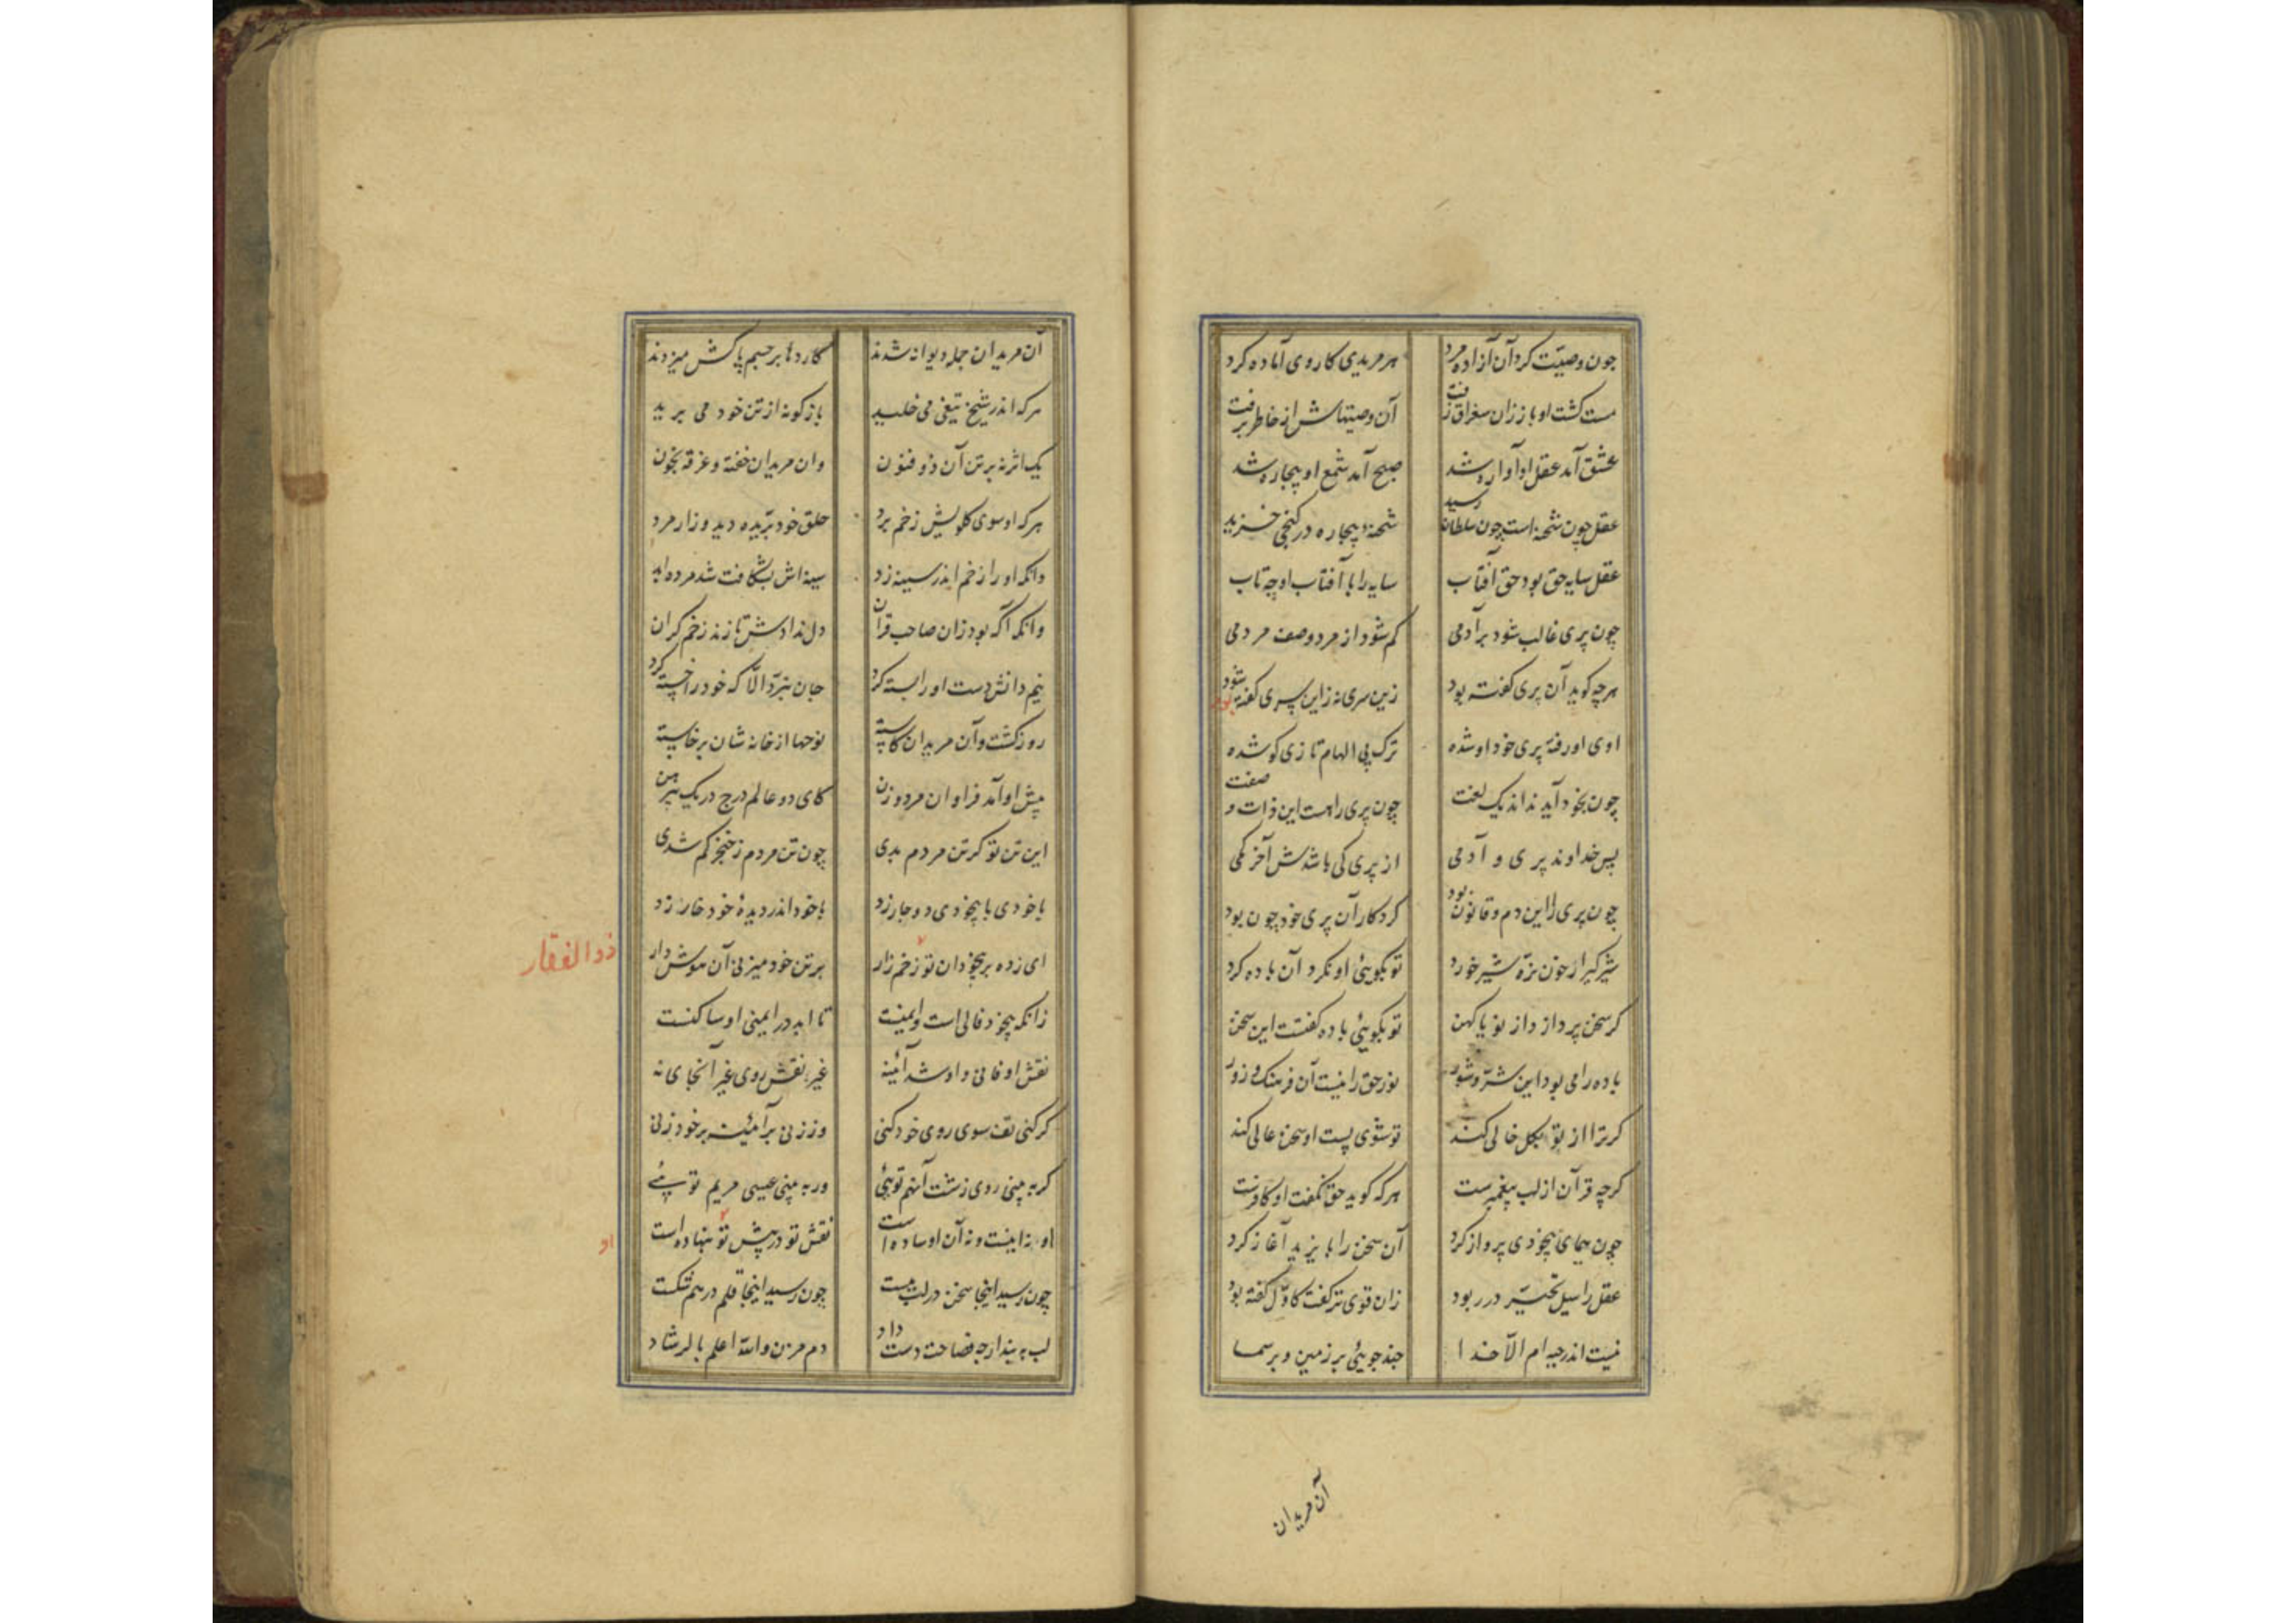 چون وصیت کرد آن آزاده مرد هر مریدی کاردی آماده کرد
مست کشت او باز زان سغراق زفت آن وصیتهاش از خاطر برفت
عشق آمد عقل او آواره شد صبح آمد شمع او بیچاره شد
عقل چون شحنه است چون سلطان رسید شحنه بیچاره در کنجی خزید
عقل سایه حق بود حق آفتاب سایه را با آفتاب او چه تاب
چون پری غالب شود بر آدمی کم شود از مرد وصف مردمی
هرچه کوید آن پری کفته بود زین سری نه زان سری کفته شود
اوی او رفته پری خود او شده ترک بی الهام تازی کو شده
چون بخود آید نداند یک لغت چون پری را هست این ذات و صفت
پس خداوند پری و آدمی از پری کی باشدش آخر کمی
چون پری را این دم و قانون بود کردکار آن پری خود چون بود
شیرکیر ار خون نره شیر خورد تو بکویی او نکرد آن باده کرد
کر سخن پردازد از نو یا کهن تو بکویی باده کفتست این سخن
باده را می بود این شر و شور نور حق را نیست آن فرهنک و زور
که ترا از تو بکل خالی کند تو شوی پست او سخن عالی کند
کرچه قرآن از لب پیغمبرست هر که کوید حق نکفت او کافرست
چون همای بیخودی پرواز کرد آن سخن را بایزید آغاز کرد
عقل را سیل تحیر در ربود زان قوی تر کفت کاول کفته بود
نیست اندر جبه ام الا خدا چند جویی بر زمین و بر سما
آن مریدان
آن مریدان جمله دیوانه شدند کاردها بر جسم پاکش میزدند
هر که اندر شیخ تیغی می خلید بازکونه از تن خود می برید
یک اثر نه بر تن آن ذو فنون وان مریدان خفته و غرقه بخون
هر که او سوی کلویش زخم برد حلق خود ببریده دید و زار مرد
وانکه او را زخم اندر سینه زد سینه اش بشکافت شد مرده ابد
وانکه آکه بود زان صاحب قران دل ندادش تا زند زخم کران
نیم دانش دست او را بسته کرد جان نبرد الا که خود را خسته کرد
روز کشت و آن مریدان کاسته نوحها از خانه شان برخاسته
پیش او آمد فراوان مرد و زن کای دو عالم درج در یک پیرهن
این تن تو کر تن مردم بدی چون تن مردم ز خنجر کم شدی
باخودی با بیخودی دوچار زد باخود اندر دیده خود خار زد
ای زده بر بیخودان تو زخم زار بر تن خود میزنی آن هوش دار
ذوالفقار
زانکه بیخود فانی است و ایمنست تا ابد در ایمنی او ساکنست
نقش او فانی و او شد آئینه غیر نقش روی غیر آنجای نه
کر کنی تف سوی روی خود کنی ور زنی بر آئینه بر خود زنی
کر به بینی روی زشت آنهم تویی ور به بینی عیسی مریم تویی
او نه اینست و نه آن او ساده است نقش تو در پیش تو بنهاده است
او
چون رسید اینجا سخن در لب ببست چون رسید اینجا قلم درهم شکست
لب به بند ار چه فصاحت دست داد دم مزن والله اعلم بالرشاد